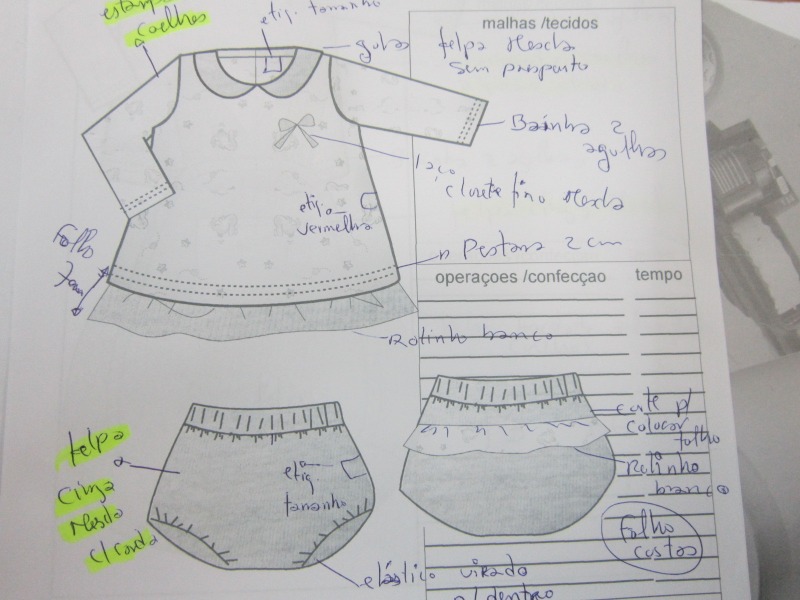 estamp
coelhos
etiq. tamanho
gola
malhas /tecidos
felpa Mescla
sem pesponto
Bainha 2
agulhas
laço
clorete fino Mescla
etiq.
vermelha
Pestana 2 cm
Folho
7cm
operaçoes /confecçao
tempo
Rolinho branco
felpa
cinza
Mescla
etiq.
tamanho
corte p/
colocar
folho
Rolinho
branco
Folho
costas
elástico virado
p/ dentro